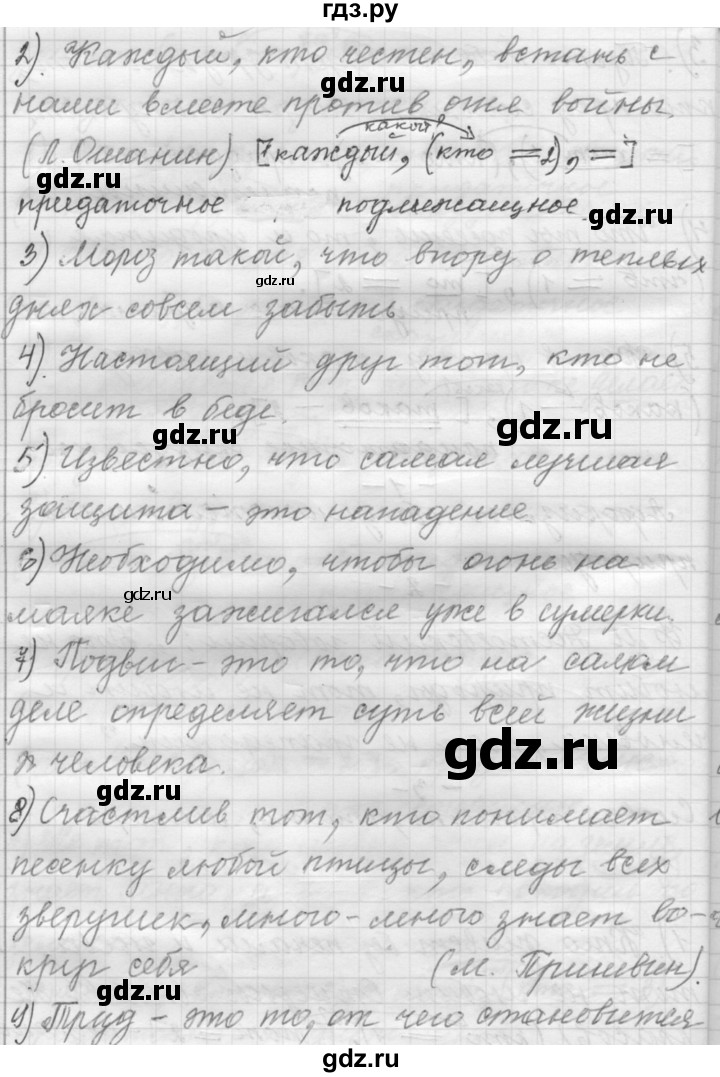 гдз.ру
2). Каждый, кто честен, встань с
gdz.ru
нами вместе против огня войны.
какой?
(Л. Ошанин). [каждый, (кто =2), =]
gdz.ru
придаточное подлежащное
gdz.ru
3) Мороз такой, что впору о теплых
gdz.ru
днях совсем забыть
4). Настоящий друг тот, кто не
бросит в беде.
gdz.ru
gdz.ru
5) Известно, что самая лучшая
защита – это нападение
gdz.ru
6) Необходимо, чтобы огонь на
gdz.ru
маяке зажигался уже в сумерки.
7) Подвиг – это то, что на самом
деле определяет суть всей жизни
gdz.ru
человека.
gdz.ru
8) Счастлив тот, кто понимает
песенку любой птицы, следы всех
зверушек, много-много знает во-
круг себя (М. Пришвин).
gdz.ru
9) Труд – это то, от чего становится
gdz.ru